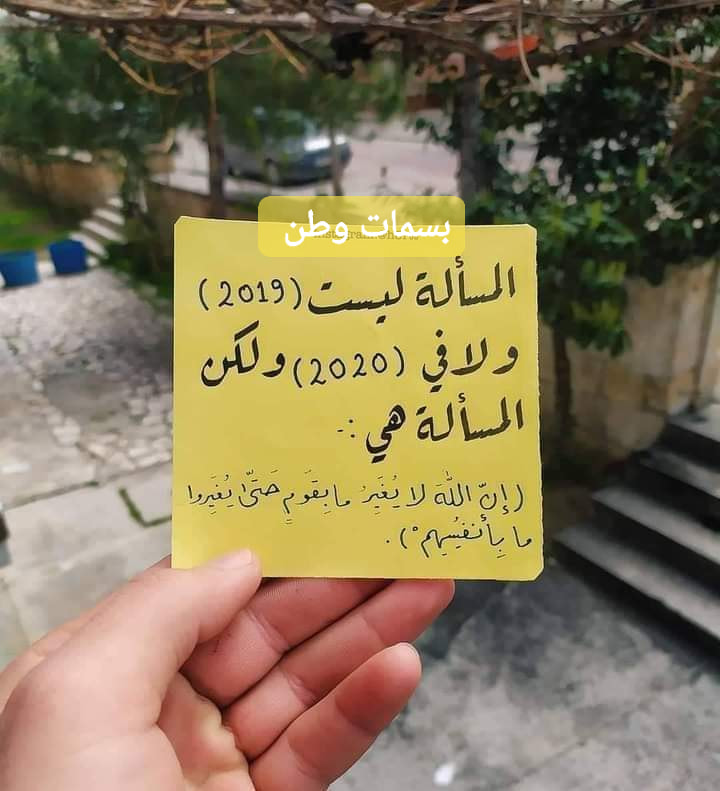 بسمات وطن
المسألة ليست (2019)
ولا في (2020) ولكن
المسألة هي :-
(إنّ اللهَ لا يُغَيرُ ما بِقَومٍ حَتىّٰ يُغَيروا
ما بِأنفُسِهم°).